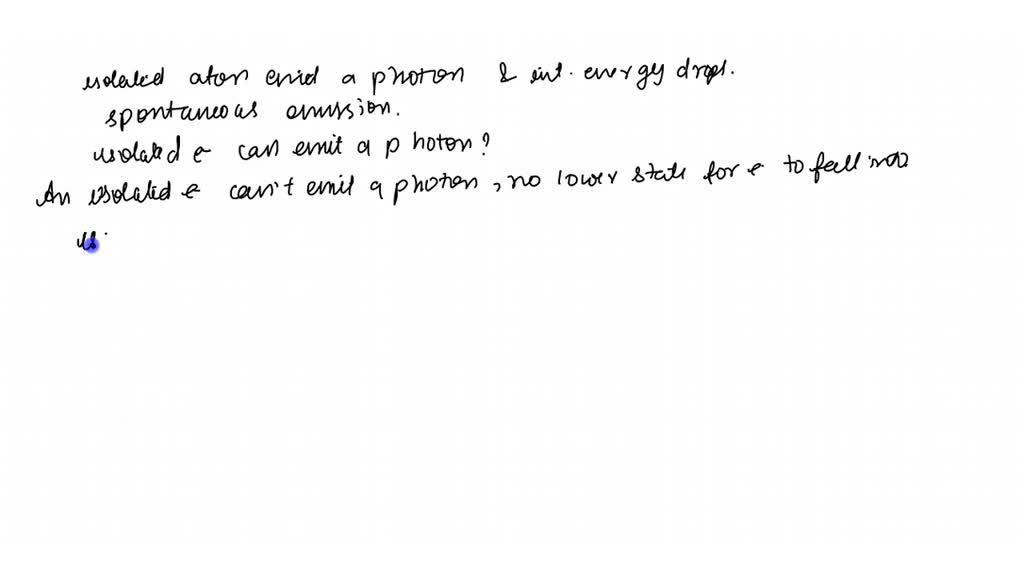 isolated atom emid a photon & int. energy drops.
spontaneous emission.
isolated e can emit a photon?
An isolated e can't emit a photon, no lower state for e to fall into